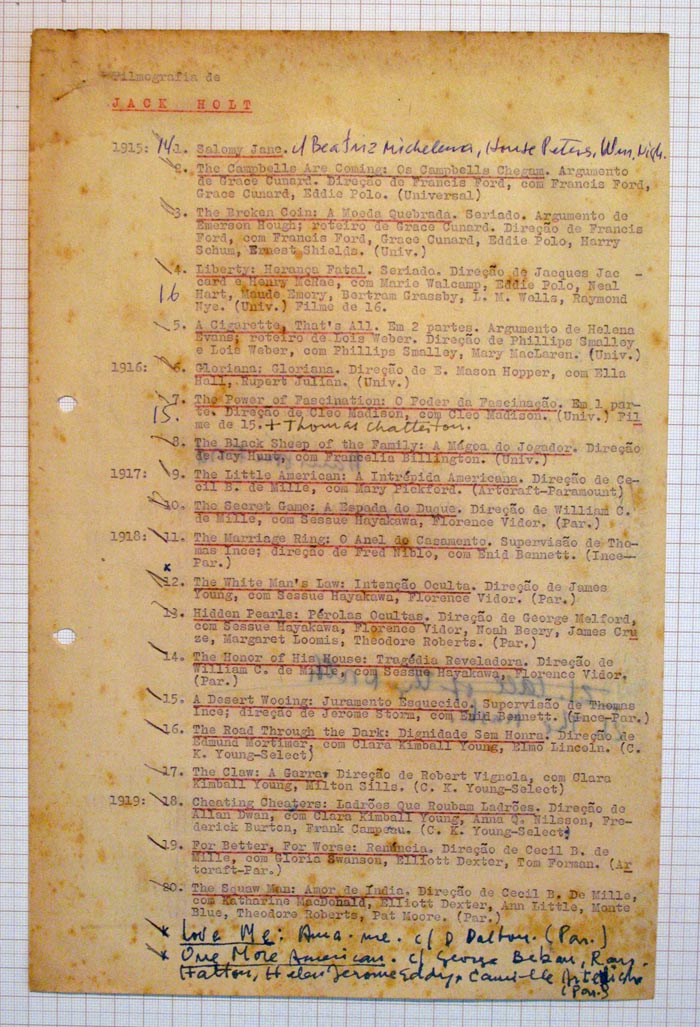 Filmografia de
JACK HOLT
1915: 14/1. Salomy Jane. c/ Beatriz Michelena, House Peters, Wm. Nigh.
2. The Campbells Are Coming: Os Campbells Chegam. Argumento
de Grace Cunard. Direção de Francis Ford, com Francis Ford,
Grace Cunard, Eddie Polo. (Universal)
3. The Broken Coin: A Moeda Quebrada. Seriado. Argumento de
Emerson Hough; roteiro de Grace Cunard. Direção de Francis
Ford, com Francis Ford, Grace Cunard, Eddie Polo, Harry
Schum, Ernest Shields. (Univ.)
4. Liberty: Herança Fatal. Seriado. Direção de Jacques Jac -
16 card e Henry McRae, com Marie Walcamp, Eddie Polo, Neal
Hart, Maude Emory, Bertram Grassby, L. M. Wells, Raymond
Nye. (Univ.) Filme de 16.
5. A Cigarette, That's All. Em 2 partes. Argumento de Helena
Evans; roteiro de Lois Weber. Direção de Phillips Smalley
e Lois Weber, com Phillips Smalley, Mary MacLaren. (Univ.)
1916: 6. Gloriana: Gloriana. Direção de E. Mason Hopper, com Ella
Hall, Rupert Julian. (Univ.)
7. The Power of Fascination: O Poder da Fascinação. Em 1 par-
15. te. Direção de Cleo Madison, com Cleo Madison. (Univ.) Fil
me de 15. + Thomas Chatterton.
8. The Black Sheep of the Family: A Mágoa do Jogador. Direção
de Jay Hunt, com Francelia Billington. (Univ.)
1917: 9. The Little American: A Intrépida Americana. Direção de Ce-
cil B. de Mille, com Mary Pickford. (Artcraft-Paramount)
10. The Secret Game: A Espada do Duque. Direção de William C.
de Mille, com Sessue Hayakawa, Florence Vidor. (Par.)
1918: 11. The Marriage Ring: O Anel do Casamento. Supervisão de Tho-
mas Ince; direção de Fred Niblo, com Enid Bennett. (Ince-
Par.)
*
12. The White Man's Law: Intenção Oculta. Direção de James
Young, com Sessue Hayakawa, Florence Vidor. (Par.)
13. Hidden Pearls: Pérolas Ocultas. Direção de George Melford,
com Sessue Hayakawa, Florence Vidor, Noah Beery, James Cru
ze, Margaret Loomis, Theodore Roberts. (Par.)
14. The Honor of His House: Tragédia Reveladora. Direção de
William C. de Mille, com Sessue Hayakawa, Florence Vidor.
(Par.)
15. A Desert Wooing: Juramento Esquecido. Supervisão de Thomas
Ince; direção de Jerome Storm, com Enid Bennett. (Ince-Par.)
16. The Road Through the Dark: Dignidade Sem Honra. Direção de
Edmund Mortimer, com Clara Kimball Young, Elmo Lincoln. (C.
K. Young-Select)
17. The Claw: A Garra. Direção de Robert Vignola, com Clara
Kimball Young, Milton Sills. (C. K. Young-Select)
1919: 18. Cheating Cheaters: Ladrões Que Roubam Ladrões. Direção de
Allan Dwan, com Clara Kimball Young, Anna Q. Nilsson, Fre-
derick Burton, Frank Campeau. (C. K. Young-Select)
19. For Better, For Worse: Renúncia. Direção de Cecil B. de
Mille, com Gloria Swanson, Elliott Dexter, Tom Forman. (Ar
tcraft-Par.)
20. The Squaw Man: Amor de Índia. Direção de Cecil B. De Mille,
com Katharine MacDonald, Elliott Dexter, Ann Little, Monte
Blue, Theodore Roberts, Pat Moore. (Par.)
* Love Me: Ama-me. c/ D Dalton. (Par.)
* One More American. c/ George Beban, Ray.
Hatton, Helen Jerome Eddy, Camille
(Par.)